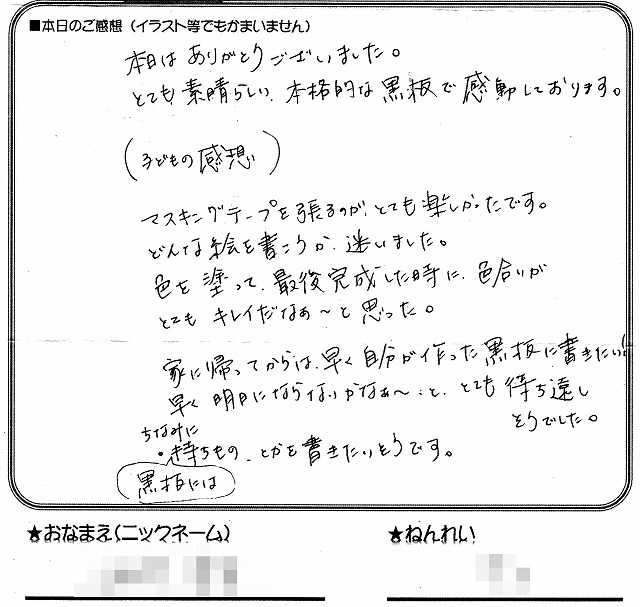 ■本日のご感想（イラスト等でもかまいません）
本日はありがとうございました。
とても素晴らしい、本格的な黒板で感動しております。
（子どもの感想）
マスキングテープを張るのが、とても楽しかったです。
どんな絵を書こうか、迷いました。
色を塗って、最後完成した時に、色合いが
とてもキレイだなぁ〜と思った。
家に帰ってからは、早く自分が作った黒板に書きたい!
早く明日にならないかなぁ〜、と、とても待ち遠し
そうでした。
ちなみに
・持ちもの、とかを書きたいそうです。
黒板には
★おなまえ(ニックネーム)
★ねんれい